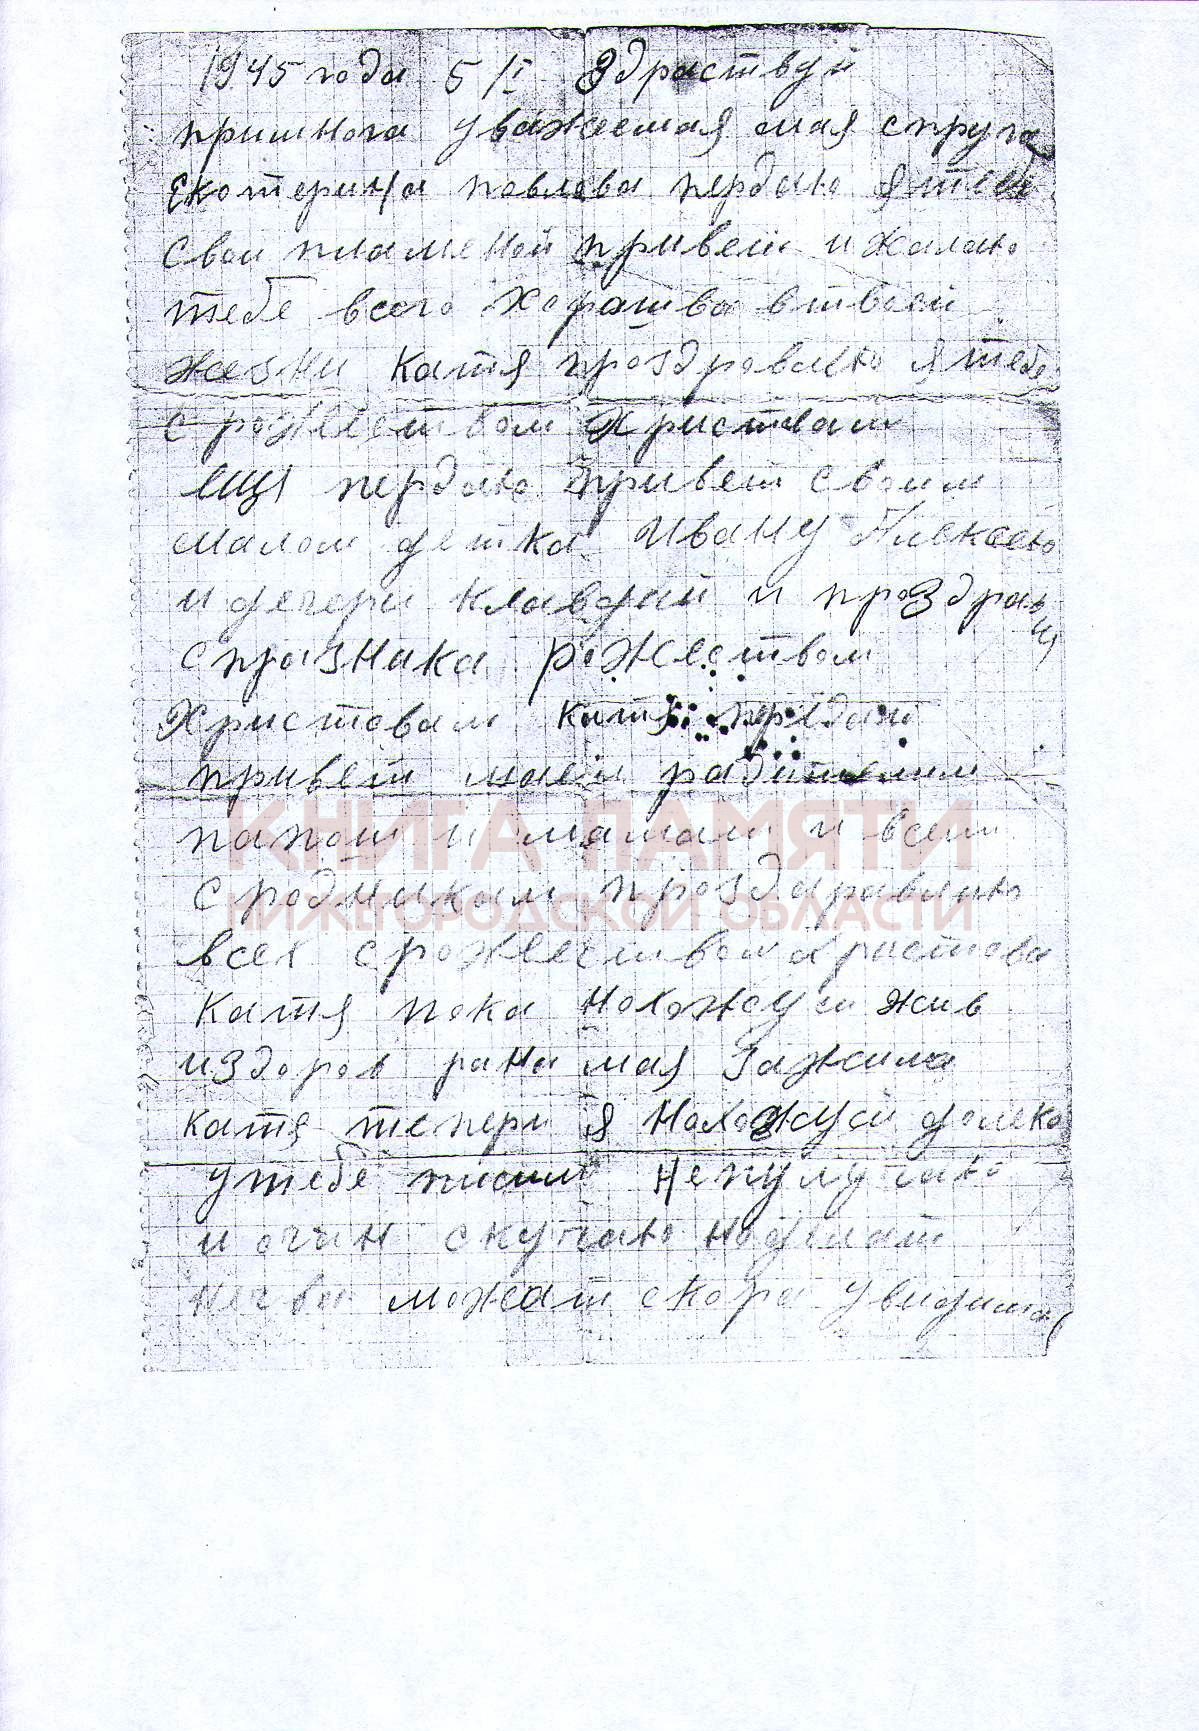 1945 года 5/I Здраствуй
примнога уважаемая мая спруга
Екотерина павлова пердаю я тебе
свои пламеной привет и жалаю
тебе всего хорашва в твоей
жезни катя проздроваю я тебе
с рожеством христвам
ещ пердаю привет своим
малом детка Ивану Алексею
и дечери клавдии и проздрав
спразника рожеством
Христовам катя передаи
привет маем радителям
папаш и мамаш и всем
сродникам проздаравлаю
всех с рожеством христова
катя пока нахожуси жив
и здоров рана мая зажила
катя тепери я нахожуси долеко
у тебе писим неполучаю
и очин скучаю наделат
нечва можат скора увидимся
КНИГА ПАМЯТИ
НИЖЕГОРОДСКОЙ ОБЛАСТИ